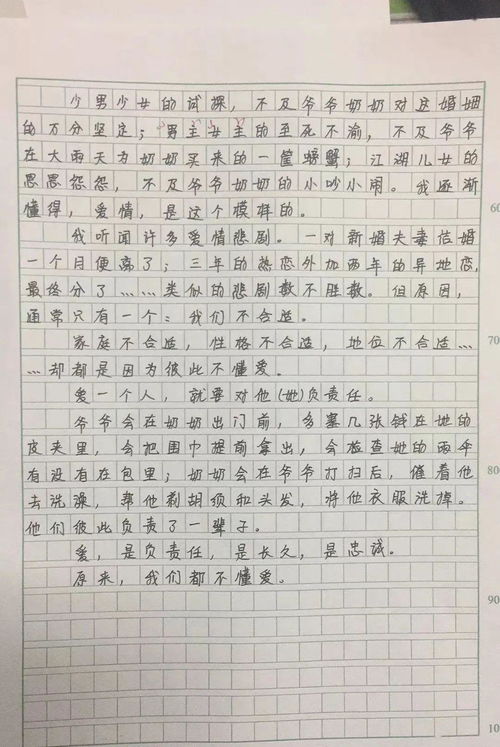 少男少女的试探，不及爷爷奶奶对这婚姻
的万分坚定；男主女主的至死不渝，不及爷爷
在大雨天为奶奶买来的一筐螃蟹；江湖儿女的
恩恩怨怨，不及爷爷奶奶的小吵小闹。我逐渐
懂得，爱情，是这个模样的。
60
我听闻许多爱情悲剧。一对新婚夫妻结婚
一个月便离了；三年的热恋外加两年的异地恋，
最终分了……类似的悲剧数不胜数。但原因，
通常只有一个：我们不合适。
70
家庭不合适，性格不合适，地位不合适…
…却都是因为彼此不懂爱。
爱一个人，就要对他(她)负责任。
爷爷会在奶奶出门前，多塞几张钱在她的
皮夹里，会把围巾提前拿出，会检查她的雨伞
80
有没有在包里；奶奶会在爷爷打扫后，催着他
去洗澡，帮他剃胡须和头发，将他衣服洗掉。
他们彼此负责了一辈子。
爱，是负责任，是长久，是忠诚。
原来，我们都不懂爱。
90
10